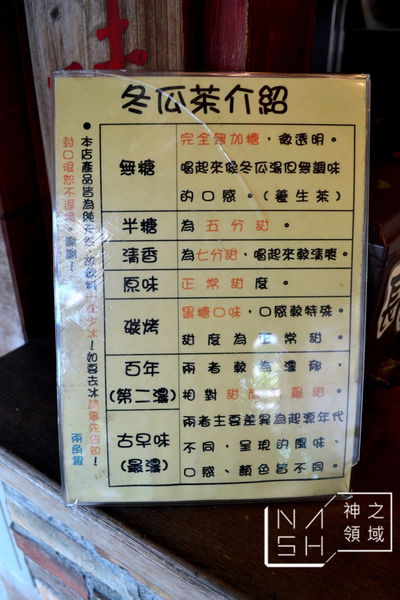 冬瓜茶介紹
無糖
完全無加糖，微透明。
喝起來像冬瓜湯但無調味
的口感。(養生茶)
半糖
為五分甜。
清香
為七分甜，喝起來較清爽。
原味
正常甜度。
碳烤
黑糖口味，口感較特殊。
甜度為正常甜。
百年
(第二濃)
兩者較為濃郁，
相對甜度最甜。
古早味
(最濃)
兩者主要差異為起源年代
不同，呈現的風味、
口感、顏色皆不同。
●本店產品皆為純天然
飲料一律少冰！如要去冰請事先告知！
封口後恕不退換。謝謝！
兩角銀
NASH
神之領域